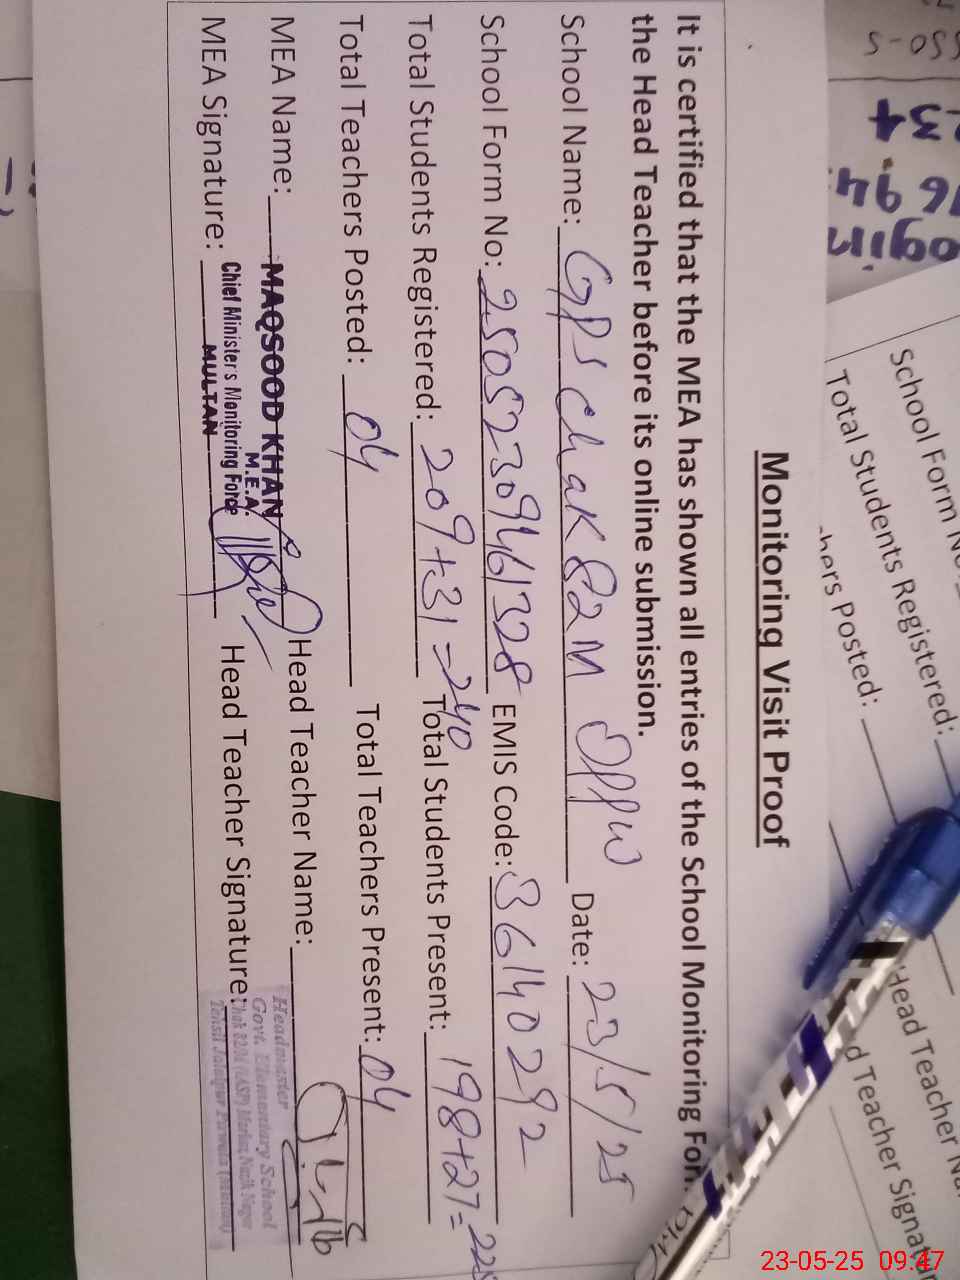 Monitoring Visit Proof
It is certified that the MEA has shown all entries of the School Monitoring For
the Head Teacher before its online submission.
School Name: GPS Chak 82M Date: 23/5/25
School Form No: 25052309461328 EMIS Code: 36140292
Total Students Registered: 209+31=240 Total Students Present: 198+27=22
Total Teachers Posted: 04 Total Teachers Present: 04
MEA Name: MAQSOOD KHAN Head Teacher Name:
M.E.A.
Chief Minister's Monitoring Force
MEA Signature: MULTAN Head Teacher Signature:
Headmaster
Govt. Elementary School
School Form No
Total Students Registered:
hers Posted:
Head Teacher
d Teacher Signat
16 94
23-05-25 09:47